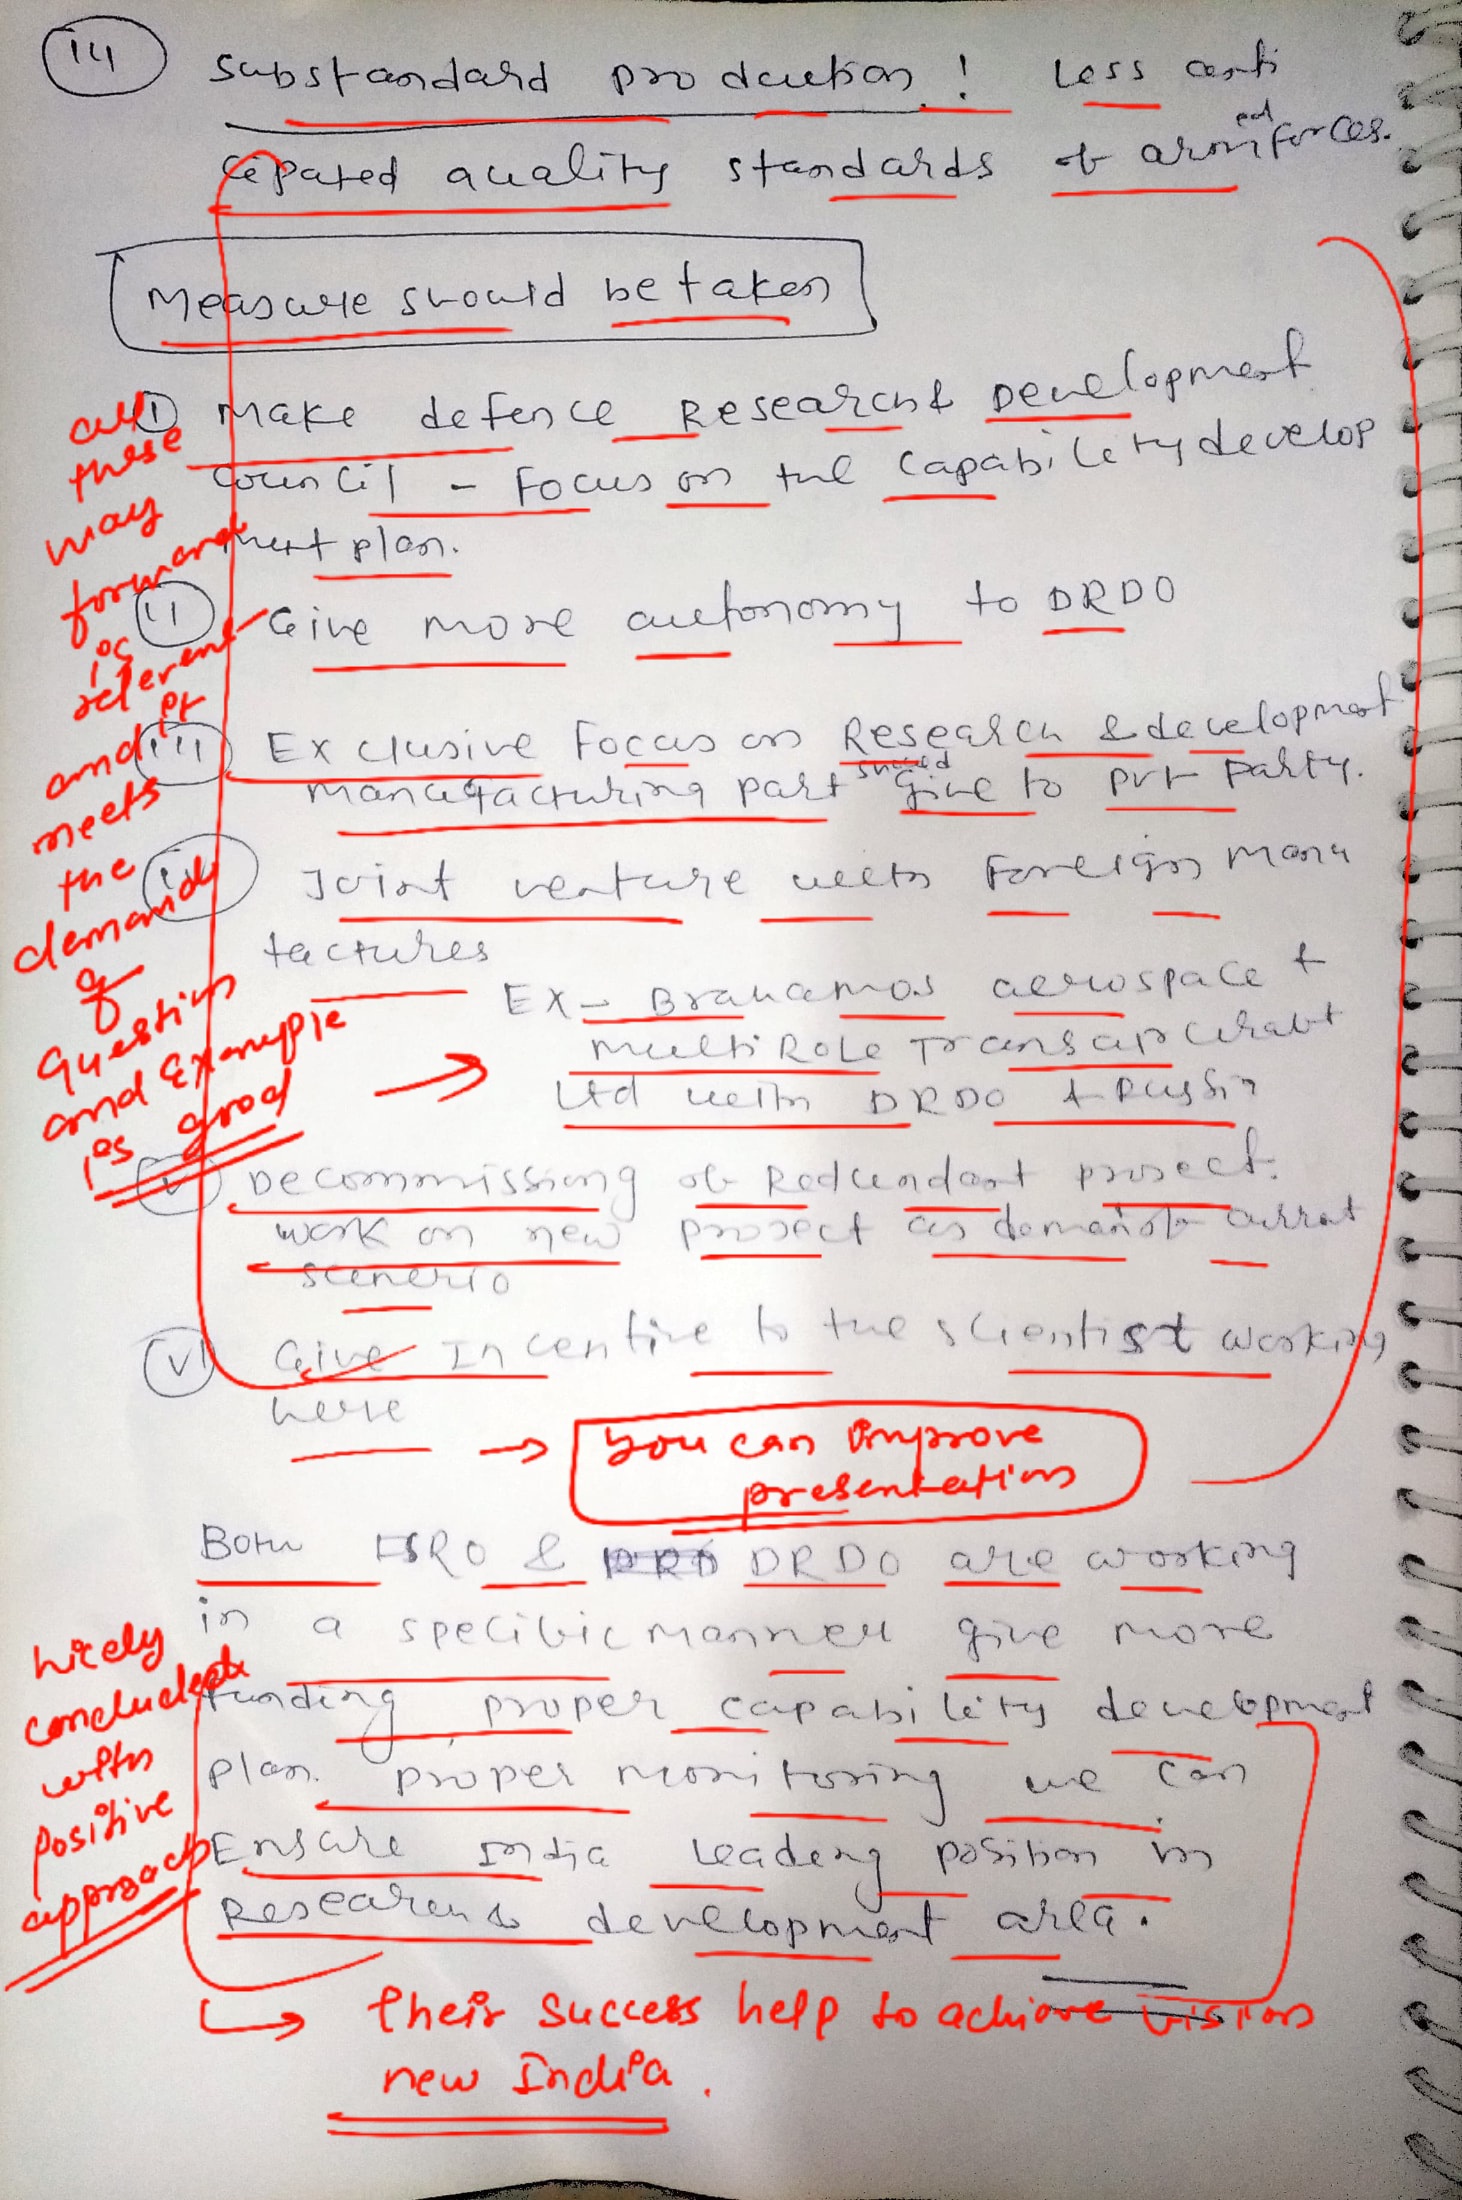 14
Substandard production! Less anti
cepated quality standards of armed forces.
Measure should be taken
I Make defence Research & Development
Council - Focus on the capability develop
ment plan.
II Give more autonomy to DRDO
III Exclusive Focus on Research & development
manufacturing part should give to pvt party.
Joint venture with Foreign manu
factures
Ex - Brahamos aerospace +
Multi Role Transair craft
Ltd with DRDO + Russia
V Decommissing of Reduendant project.
work on new project as demand of currat
scenerio
VI Give Incentive to the scientist working
here
all
these
way
forward
is
relevent
and it
meets
the
demand
of
question
and Example
is good
→ you can improve
presentation
Both ISRO & DRDO are working
in a specific manner give more
funding proper capability development
plan. proper monitoring we can
Ensure India leading position in
Research & development area.
Nicely
concluded
with
positive
approach
→ their success help to achieve vision
new India.